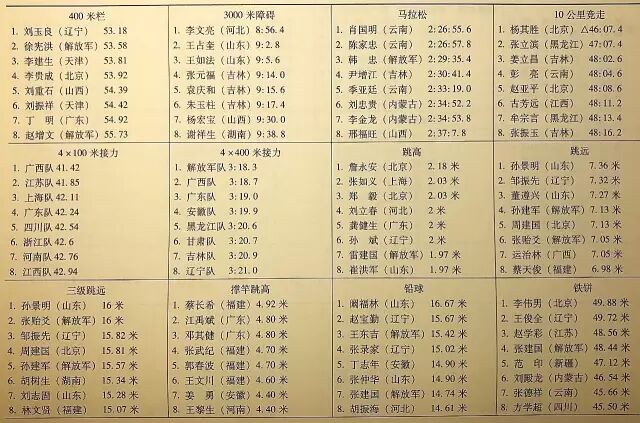 400 米栏
1. 刘玉良（辽宁） 53.18
2. 徐宪洪（解放军） 53.58
3. 李建生（天津） 53.81
4. 李贵成（北京） 53.92
5. 刘重石（山西） 54.39
6. 刘振祥（天津） 54.42
7. 丁 明（广东） 54.92
8. 赵增文（解放军） 55.73
3000 米障碍
1. 李文亮（河北） 8:56.4
2. 王占奎（山东） 9:2.8
3. 王如法（山东） 9:5.6
4. 张元福（吉林） 9:14.0
5. 袁庆和（吉林） 9:15.6
6. 朱玉柱（吉林） 9:17.4
7. 杨宏宝（山西） 9:30.0
8. 谢祥生（湖南） 9:38.8
马拉松
1. 肖国明（云南） 2:26:55.6
2. 陈家忠（云南） 2:27:58.8
3. 韩 忠（解放军） 2:29:35.4
4. 尹增江（吉林） 2:30:41.4
5. 季亚廷（云南） 2:33:19.0
6. 刘忠贵（内蒙古） 2:34:52.2
7. 李金龙（内蒙古） 2:34:53.8
8. 邢福旺（山西） 2:37:7.8
10 公里竞走
1. 杨其胜（北京） △46:07.4
2. 张立滨（黑龙江） 47:07.4
3. 姜立昌（吉林） 48:02.6
4. 彭 亮（云南） 48:04.6
5. 赵亚平（北京） 48:08.6
6. 古芳远（江西） 48:11.2
7. 牟宗言（黑龙江） 48:13.4
8. 张振玉（吉林） 48:16.2
4×100 米接力
1. 广西队 41.42
2. 江苏队 41.85
3. 上海队 42.11
4. 广东队 42.24
5. 四川队 42.54
6. 浙江队 42.6
7. 河南队 42.76
8. 江西队 42.94
4×400 米接力
1. 解放军队 3:18.3
2. 广西队 3:18.7
3. 广东队 3:19.0
4. 安徽队 3:19.9
5. 黑龙江队 3:20.6
6. 甘肃队 3:20.7
7. 吉林队 3:20.9
8. 辽宁队 3:21.0
跳高
1. 詹永安（北京） 2.18 米
2. 张如义（上海） 2.03 米
3. 郑 毅（北京） 2.03 米
4. 刘立春（河北） 2 米
5. 龚健生（广东） 2 米
6. 孙 斌（辽宁） 2 米
7. 雷建国（解放军） 1.97 米
8. 崔洪军（山东） 1.97 米
跳远
1. 孙景明（山东） 7.36 米
2. 邹振先（辽宁） 7.32 米
3. 董遵兴（山东） 7.27 米
4. 孙建军（解放军） 7.13 米
5. 周建国（北京） 7.13 米
6. 张贻爻（解放军） 7.05 米
7. 运治林（广西） 7.05 米
8. 蔡天俊（福建） 6.98 米
三级跳远
1. 孙景明（山东） 16 米
2. 张贻爻（解放军） 16 米
3. 邹振先（辽宁） 15.82 米
4. 周建国（北京） 15.81 米
5. 孙建军（解放军） 15.57 米
6. 胡树生（湖南） 15.34 米
7. 刘志固（山东） 15.28 米
8. 林文贤（福建） 15.07 米
撑竿跳高
1. 蔡长希（福建） 4.92 米
2. 江禹斌（广东） 4.80 米
3. 邓其健（广东） 4.80 米
4. 张武纪（福建） 4.70 米
5. 郭春波（福建） 4.70 米
6. 王文川（福建） 4.60 米
7. 姜 勇（安徽） 4.40 米
8. 王黎生（河南） 4.40 米
铅球
1. 阚福林（山东） 16.67 米
2. 赵宝勤（辽宁） 15.67 米
3. 王东吉（解放军） 15.42 米
4. 张录家（辽宁） 15.02 米
5. 丁志年（安徽） 14.90 米
6. 张仲华（山东） 14.90 米
7. 姜建国（解放军） 14.74 米
8. 胡振海（河北） 14.61 米
铁饼
1. 李伟男（北京） 49.88 米
2. 王俊全（辽宁） 49.72 米
3. 赵学彩（江苏） 48.56 米
4. 张建国（解放军） 48.44 米
5. 范 印（新疆） 47.12 米
6. 刘殿龙（内蒙古） 46.54 米
7. 张德祥（云南） 45.66 米
8. 方学超（四川） 45.50 米